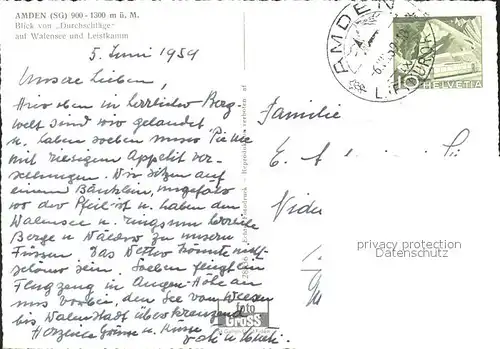 AMDEN (SG) 900 - 1300 m ü. M.
Blick von „Durchschläge"
auf Walensee und Leistkamm
5. Juni 1959
Unsere Lieben,
Hier oben in herrlicher Berg-
welt sind wir gelandet
u. haben soeben unser
mit riesigem Appetit ver-
schlungen. Wir sitzen auf
einem Bänklein, ungefähr
wo der Pfeil ist u. haben den
Walensee u. ringsum herrliche
Berge u. Wälder zu unsern
Füssen. Das Wetter könnte nicht
schöner sein. Soeben fliegt ein
Flugzeug in Augen-Höhe an
uns vorbei, den See von Weesen
bis Walenstadt überkreuzend.
Herzliche Grüsse u. Küsse
AMDEN
HELVETIA
Familie
E
privacy protection
Datenschutz
foto
GROSS